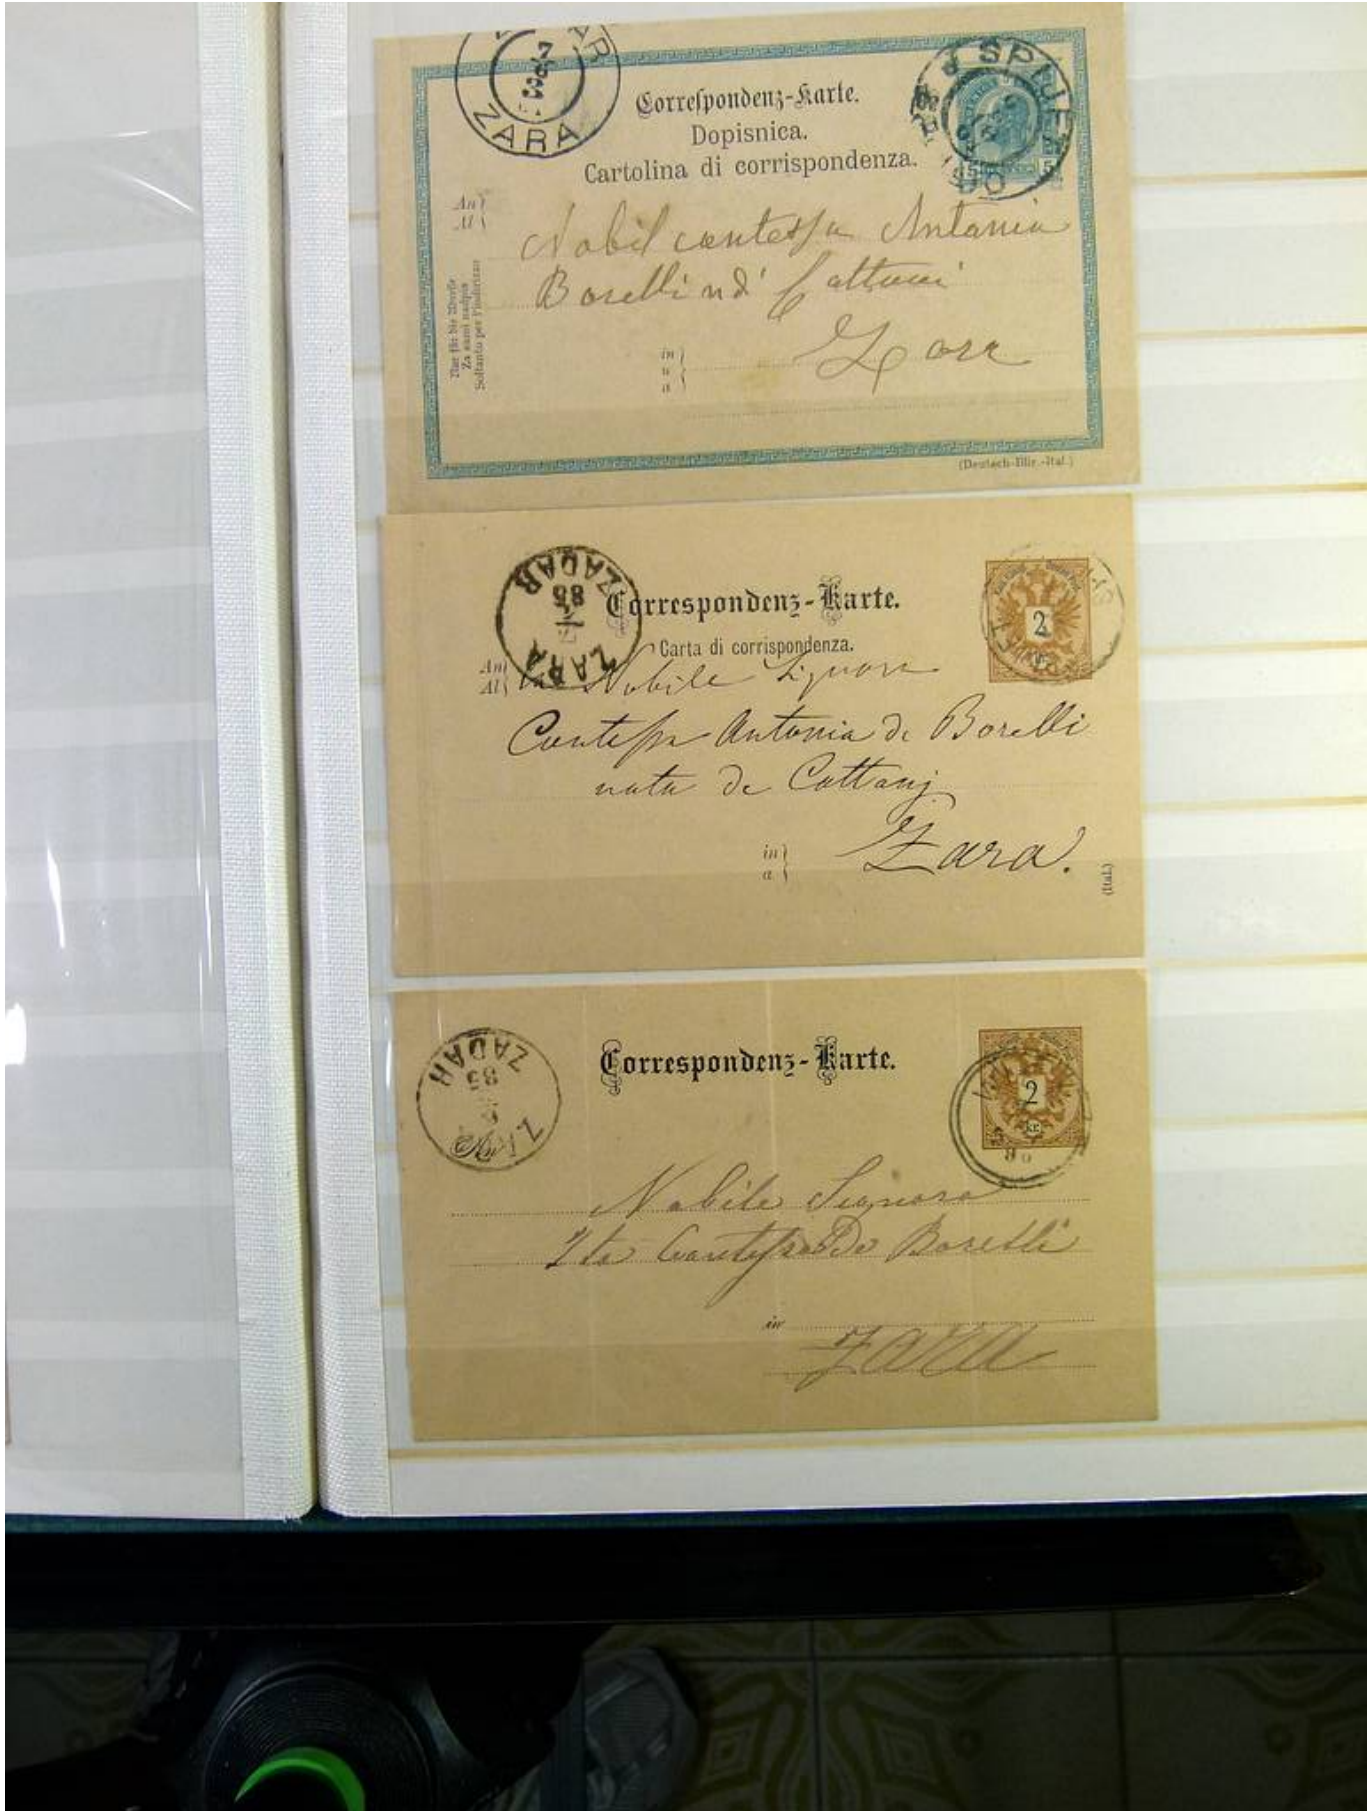 ZARA
Correspondenz-Karte.
Dopisnica.
Cartolina di corrispondenza.
5 5
An
Al
Nobil contessa Antonia
Borelli nd' Cattani
Zara
in
u
a
Nur für die Adresse
Za sami nadpis
Soltanto per l'indirizzo
(Deutsch-Illir.-Ital.)
ZARA ZADAR
85
Correspondenz-Karte.
Carta di corrispondenza.
2
An
Al
Nobile Signora
Contessa Antonia de Borelli
nata de Cattanj
in
a
Zara.
(Ital.)
ZADAR
85
Correspondenz-Karte.
2
kr.
Nobile Signora
Contessa De Borelli
in
Zara